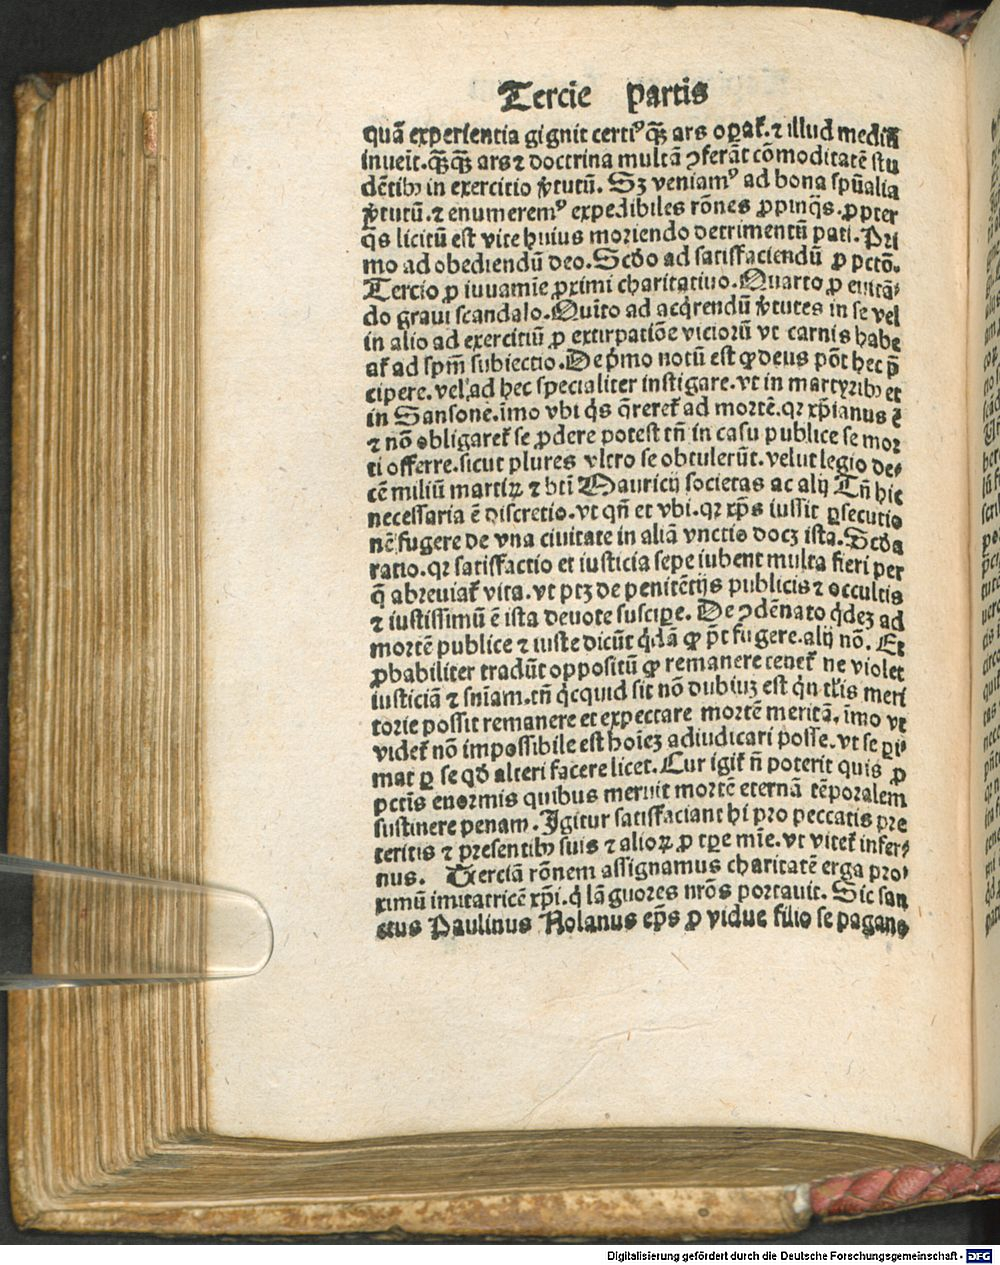 Tercie Partis
quã experientia gignit certiꝰ qȝ ars oꝑat̃. ⁊ illud mediũ
inueit. qȝqȝ ars ⁊ doctrina multã ꝯferãt cõmoditatẽ stu
dẽtibꝫ in exercitio ꝟtutũ. Sȝ veniamꝰ ad bona spũalia
ꝟtutũ. ⁊ enumeremꝰ expedibiles rõnes ꝓpinq̃s. ꝓpter
q̃s licitũ est vite huius moriendo detrimentũ pati. Pri
mo ad obediendũ deo. Scďo ad satisfaciendũ ꝓ pctõ.
Tercio ꝓ iuuamĩe ꝓximi charitatiuo. Quarto ꝓ euitã⸗
do graui scandalo. Quĩto ad acq̃rendũ ꝟtutes in se vel
in alio ad exercitiũ ꝓ extirpatiõe viciorũ vt carnis habe
at̃ ad spm̃ subiectio. De p̃mo notũ est ꝙ deus põt hec p̃
cipere. vel ad hec specialiter instigare. vt in martyribꝫ et
in Sansone. ĩmo vbi q̃s q̃reret̃ ad mortẽ. qꝛ xp̃ianus ẽ
⁊ nõ obligaret̃ se ꝓdere potest tñ in casu publice se mor
ti offerre. sicut plures vltro se obtulerũt. velut legio de⸗
cẽ miliũ martiꝝ ⁊ bti̊ Mauricij societas ac alij Tñ hic
necessaria ẽ discretio. vt qñ et vbi. qꝛ xp̃s iussit ꝑsecutio
nẽ fugere de vna ciuitate in aliã vnctio docȝ ista. Scďa
ratio. qꝛ satisfactio et iusticia sepe iubent multa fieri per
q̃ abreuiat̃ vita. vt ptȝ de penitẽtijs publicis ⁊ occultis
⁊ iustissimũ ẽ ista deuote suscipe. De ꝯdẽnato q̃deȝ ad
mortẽ publice ⁊ iuste dicũt q̃dã ꝙ p̃t fugere. alij nõ. Et
ꝓbabiliter tradũt oppositũ ꝙ remanere tenet̃ ne violet
iusticiã ⁊ sniãm. tñ q̃cquid sit nõ dubiuȝ est q̃n tl̃is meri
torie possit remanere et expectare mortẽ meritã. ĩmo vt
videt̃ nõ impossibile est hoĩeȝ adiudicari posse. vt se ꝑi⸗
mat ꝑ se qď alteri facere licet. Cur igit̃ ñ poterit quis ꝓ
pctĩs enormis quibus meruit mortẽ eternã tẽporalem
sustinere penam. Igitur satisfaciant hi pro peccatis pre
teritis ⁊ presentibꝫ suis ⁊ alioꝝ ꝓ tꝑe mĩe. vt vitet̃ infer⸗
nus. Terciã rõnem assignamus charitatẽ erga pro⸗
ximũ imitatricẽ xp̃i. q̃ lãguores nr̃os portauit. Sic san
ctus Paulinus Nolanus ep̃s ꝓ vidue filio se pagano
Digitalisierung gefördert durch die Deutsche Forschungsgemeinschaft - DFG